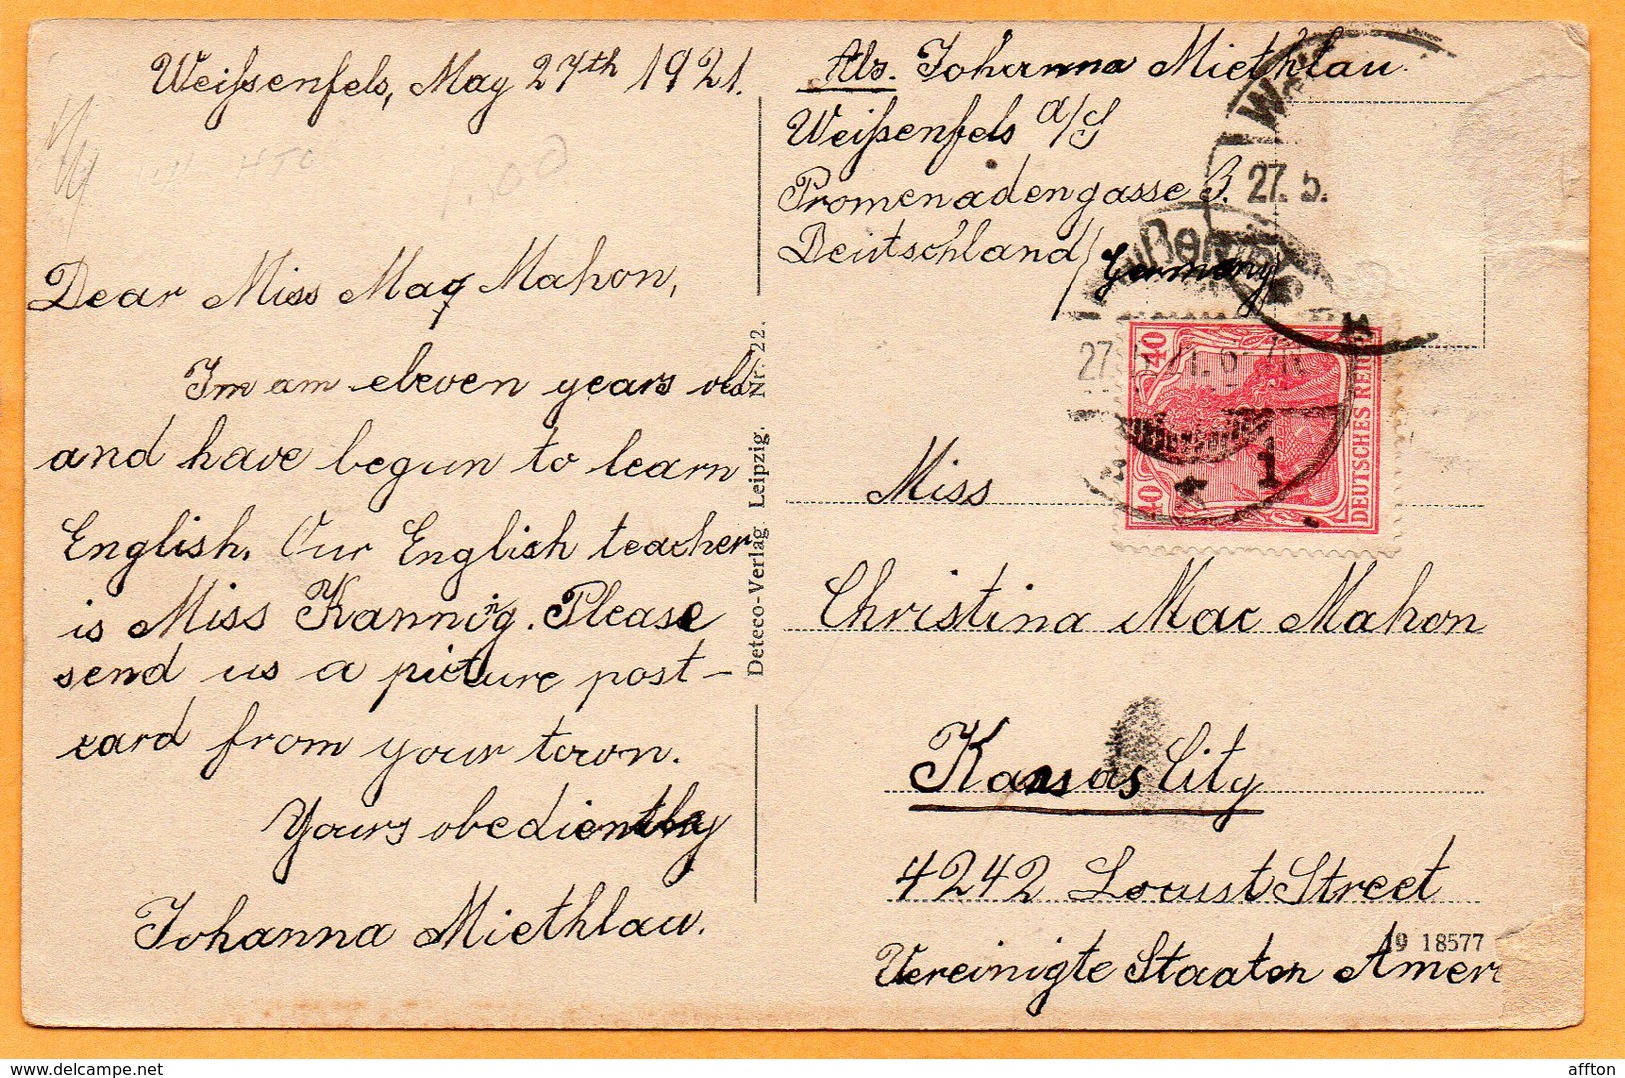 Weißenfels, May 27th 1921.
Dear Miss May Mahon,
I'm am eleven years old
and have begun to learn
English. Our English teacher
is Miss Kannnig. Please
send us a picture post-
card from your town.
Yours obediently
Johanna Miethlau.
Deteco-Verlag Leipzig. Nr. 22.
Abs. Johanna Miethlau.
Weißenfels a/S
Promenadengasse 3.
Deutschland / Germany
27. 5.
27
1
40
40
DEUTSCHES REICH
Miss
Christina Mac Mahon
Kansas City
4242 Locust Street
19 18577
Vereinigte Staaten Amer
affton